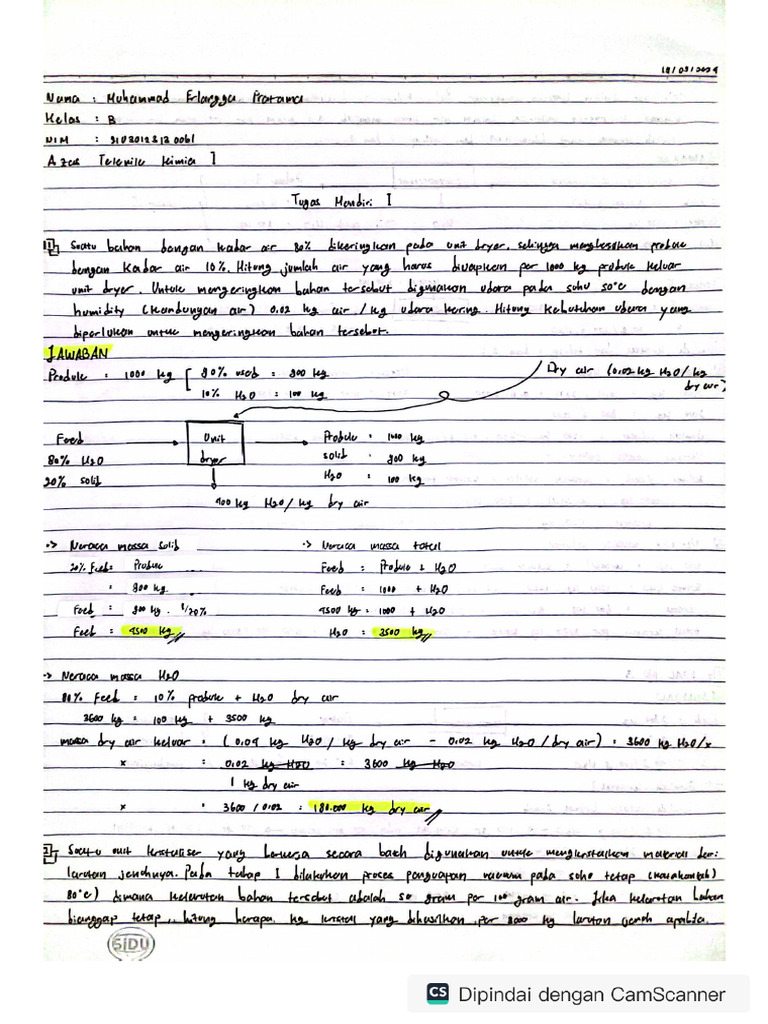 18/03/2024
Nama : Muhammad Erlangga Pratama
Kelas : B
NIM :
Azas Teknik Kimia I
Tugas Mandiri I
1 Suatu bahan dengan kadar air 80% dikeringkan pada unit dryer, sehingga menghasilkan produk
dengan kadar air 10%. Hitung jumlah air yang harus diuapkan per 1000 kg produk keluar
unit dryer. Untuk mengeringkan bahan tersebut digunakan udara pada suhu 50°C dengan
humidity (kandungan air) 0.02 kg air / kg udara kering. Hitung kebutuhan udara yang
diperlukan untuk mengeringkan bahan tersebut.
JAWABAN
Produk : 1000 kg [ 90% = 900 kg
10% H2O = 100 kg
Dry air (0.02 kg H2O / kg
dry air)
Feed
80% H2O
20% solid
Unit
dryer
Produk = 1000 kg
solid = 900 kg
H2O = 100 kg
kg H2O/kg dry air
-> Neraca massa solid
20% Feed = Produk
= 900 kg
Feed = 900 kg . 1/20%
Feed = 4500 kg
-> Neraca massa total
Feed = Produk + H2O
Feed = 1000 + H2O
4500 kg = 1000 + H2O
H2O = 3500 kg
-> Neraca massa H2O
80% Feed = 10% produk + H2O dry air
3600 kg = 100 kg + 3500 kg
massa dry air keluar = (0.04 kg H2O / kg dry air - 0.02 kg H2O / dry air) = 3600 kg H2O/x
x = 0.02 kg H2O = 3600 kg H2O
1 kg dry air
x = 3600 / 0.02 = 180.000 kg dry air
2 Suatu unit kristaliser yang bekerja secara batch digunakan untuk mengkristalkan material dari
larutan jenuhnya. Pada tahap I dilakukan proses penguapan vacuum pada suhu tetap
80°C) dimana kelarutan bahan tersebut adalah 50 gram per 100 gram air. Jika kelarutan bahan
dianggap tetap, hitung berapa kg kristal yang dihasilkan per larutan jenuh apabila.
SIDU
CS Dipindai dengan CamScanner